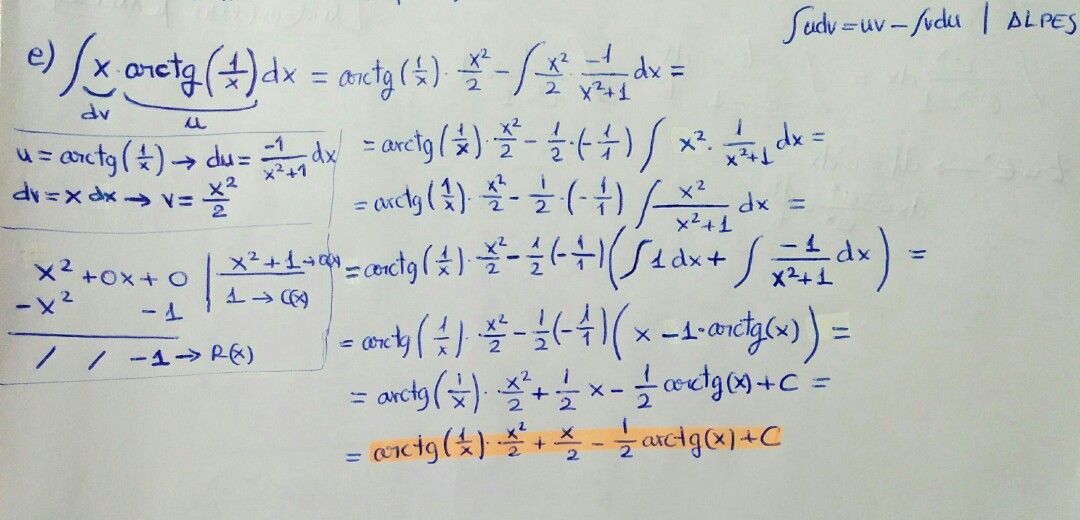 ∫udv = uv − ∫vdu | ALPES
e) ∫ x · arctg(1/x) dx = arctg(1/x) · x²/2 − ∫ x²/2 · −1/(x²+1) dx =
dv u
u = arctg(1/x) → du = −1/(x²+1) dx
dv = x dx → v = x²/2
= arctg(1/x) · x²/2 − 1/2 · (−1/1) ∫ x² · 1/(x²+1) dx =
= arctg(1/x) · x²/2 − 1/2 · (−1/1) ∫ x²/(x²+1) dx =
x² + 0x + 0 | x² + 1 →
−x² − 1 | 1 → C(x)
/ / −1 → R(x)
= arctg(1/x) · x²/2 − 1/2 (−1/1) (∫ 1 dx + ∫ −1/(x²+1) dx) =
= arctg(1/x) · x²/2 − 1/2 (−1/1) (x − 1 · arctg(x)) =
= arctg(1/x) · x²/2 + 1/2 x − 1/2 arctg(x) + C =
= arctg(1/x) · x²/2 + x/2 − 1/2 arctg(x) + C